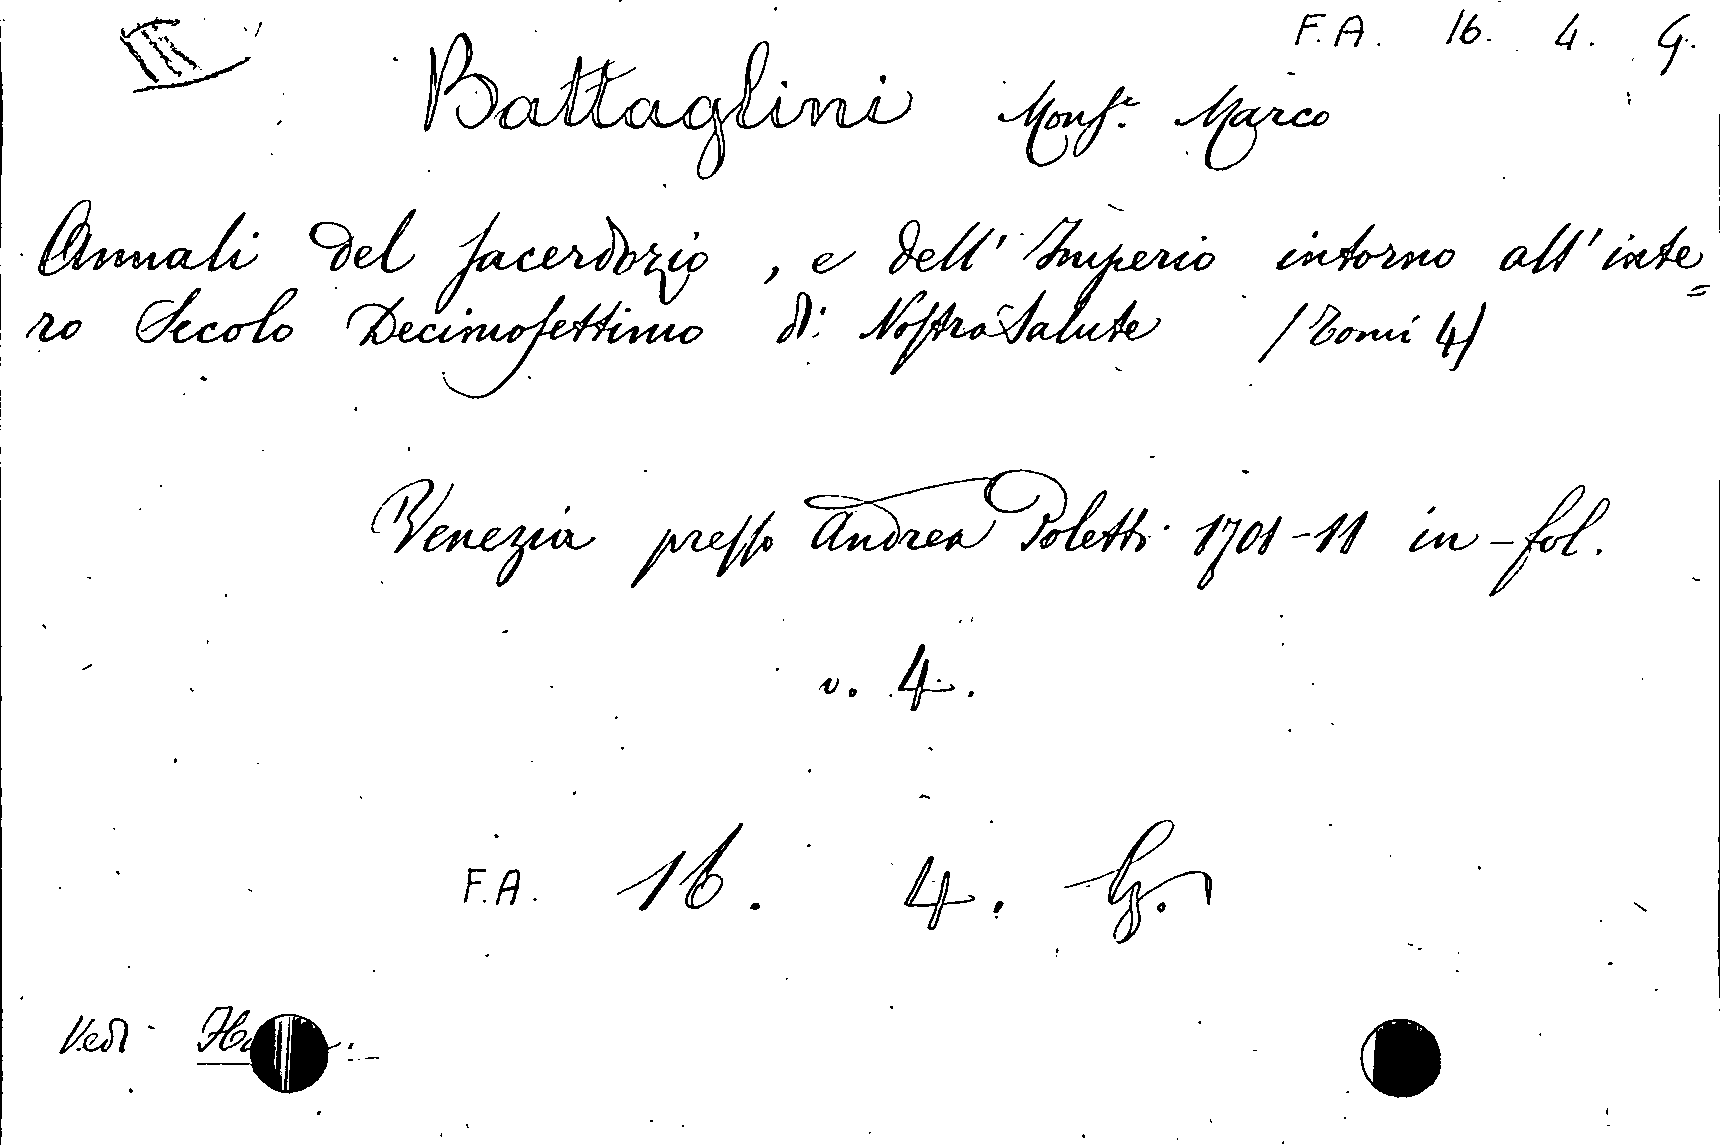 F.A. 16. 4. G.
Battaglini Monsr. Marco
Annali del sacerdozio, e dell' Imperio intorno all' inte=
ro Secolo Decimosettimo di Nostra Salute (Tomi 4)
Venezia presso Andrea Poletti 1701-11 in-fol.
v. 4.
F.A. 16. 4. G.
Vedi